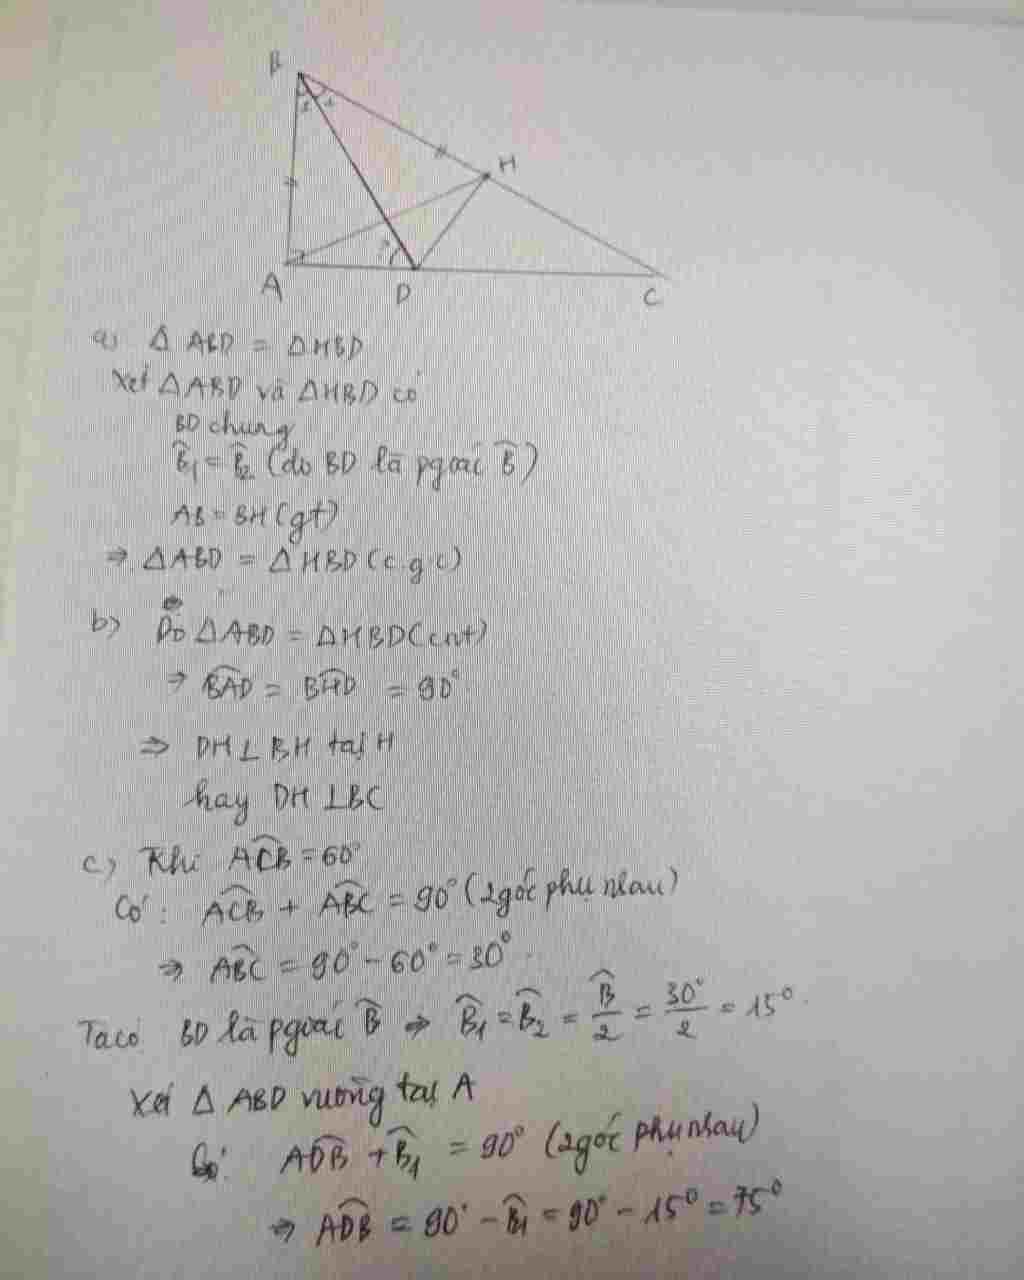 B
2 1
H
A
?
D
C
a) Δ ABD = ΔHBD
Xét ΔABD và ΔHBD có
BD chung
B̂₁ = B̂₂ (do BD là pgoác B̂)
AB = BH (gt)
⇒ ΔABD = ΔHBD (c.g.c)
b) Do ΔABD = ΔHBD (cmt)
⇒ BAD̂ = BHD̂ = 90°
⇒ DH ⊥ BH tại H
hay DH ⊥ BC
c) Khi ACB̂ = 60°
Có: ACB̂ + ABĈ = 90° (2 góc phụ nhau)
⇒ ABĈ = 90° - 60° = 30°
Ta có BD là pgoác B̂ ⇒ B̂₁ = B̂₂ = B̂/2 = 30°/2 = 15°
Xét Δ ABD vuông tại A
Có: ADB̂ + B̂₁ = 90° (2 góc phụ nhau)
⇒ ADB̂ = 90° - B̂₁ = 90° - 15° = 75°